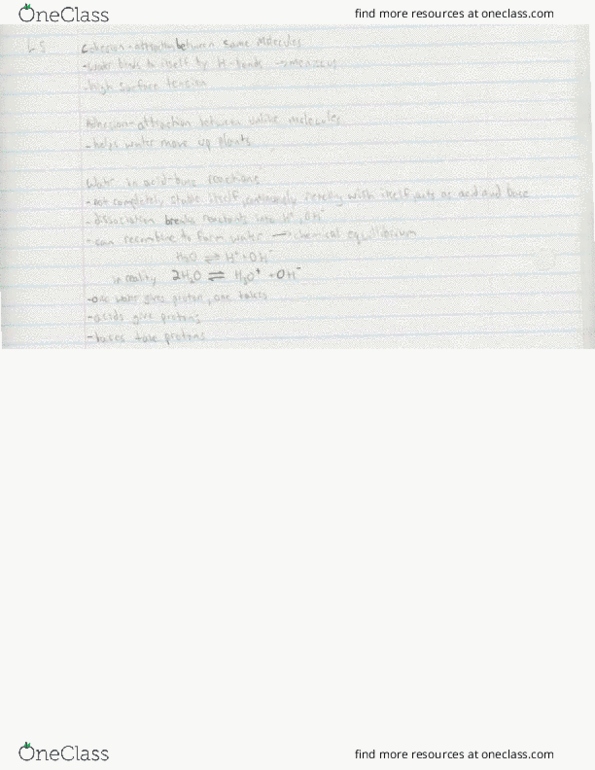 OneClass
find more resources at oneclass.com
L5
Cohesion-attraction between same molecules
-water binds to itself by H-bonds → meniscus
-high surface tension
Adhesion-attraction between unlike molecules
-helps water move up plants
Water in acid-base reactions
-not completely stable itself, continuously reacting with itself, acts as acid and base
-dissociation breaks reactants into H⁺, OH⁻
-can recombine to form water → chemical equilibrium
H₂O ⇌ H⁺+OH⁻
in reality 2H₂O ⇌ H₃O⁺ +OH⁻
-one water gives proton, one takes
-acids give protons
-bases take protons
OneClass
find more resources at oneclass.com